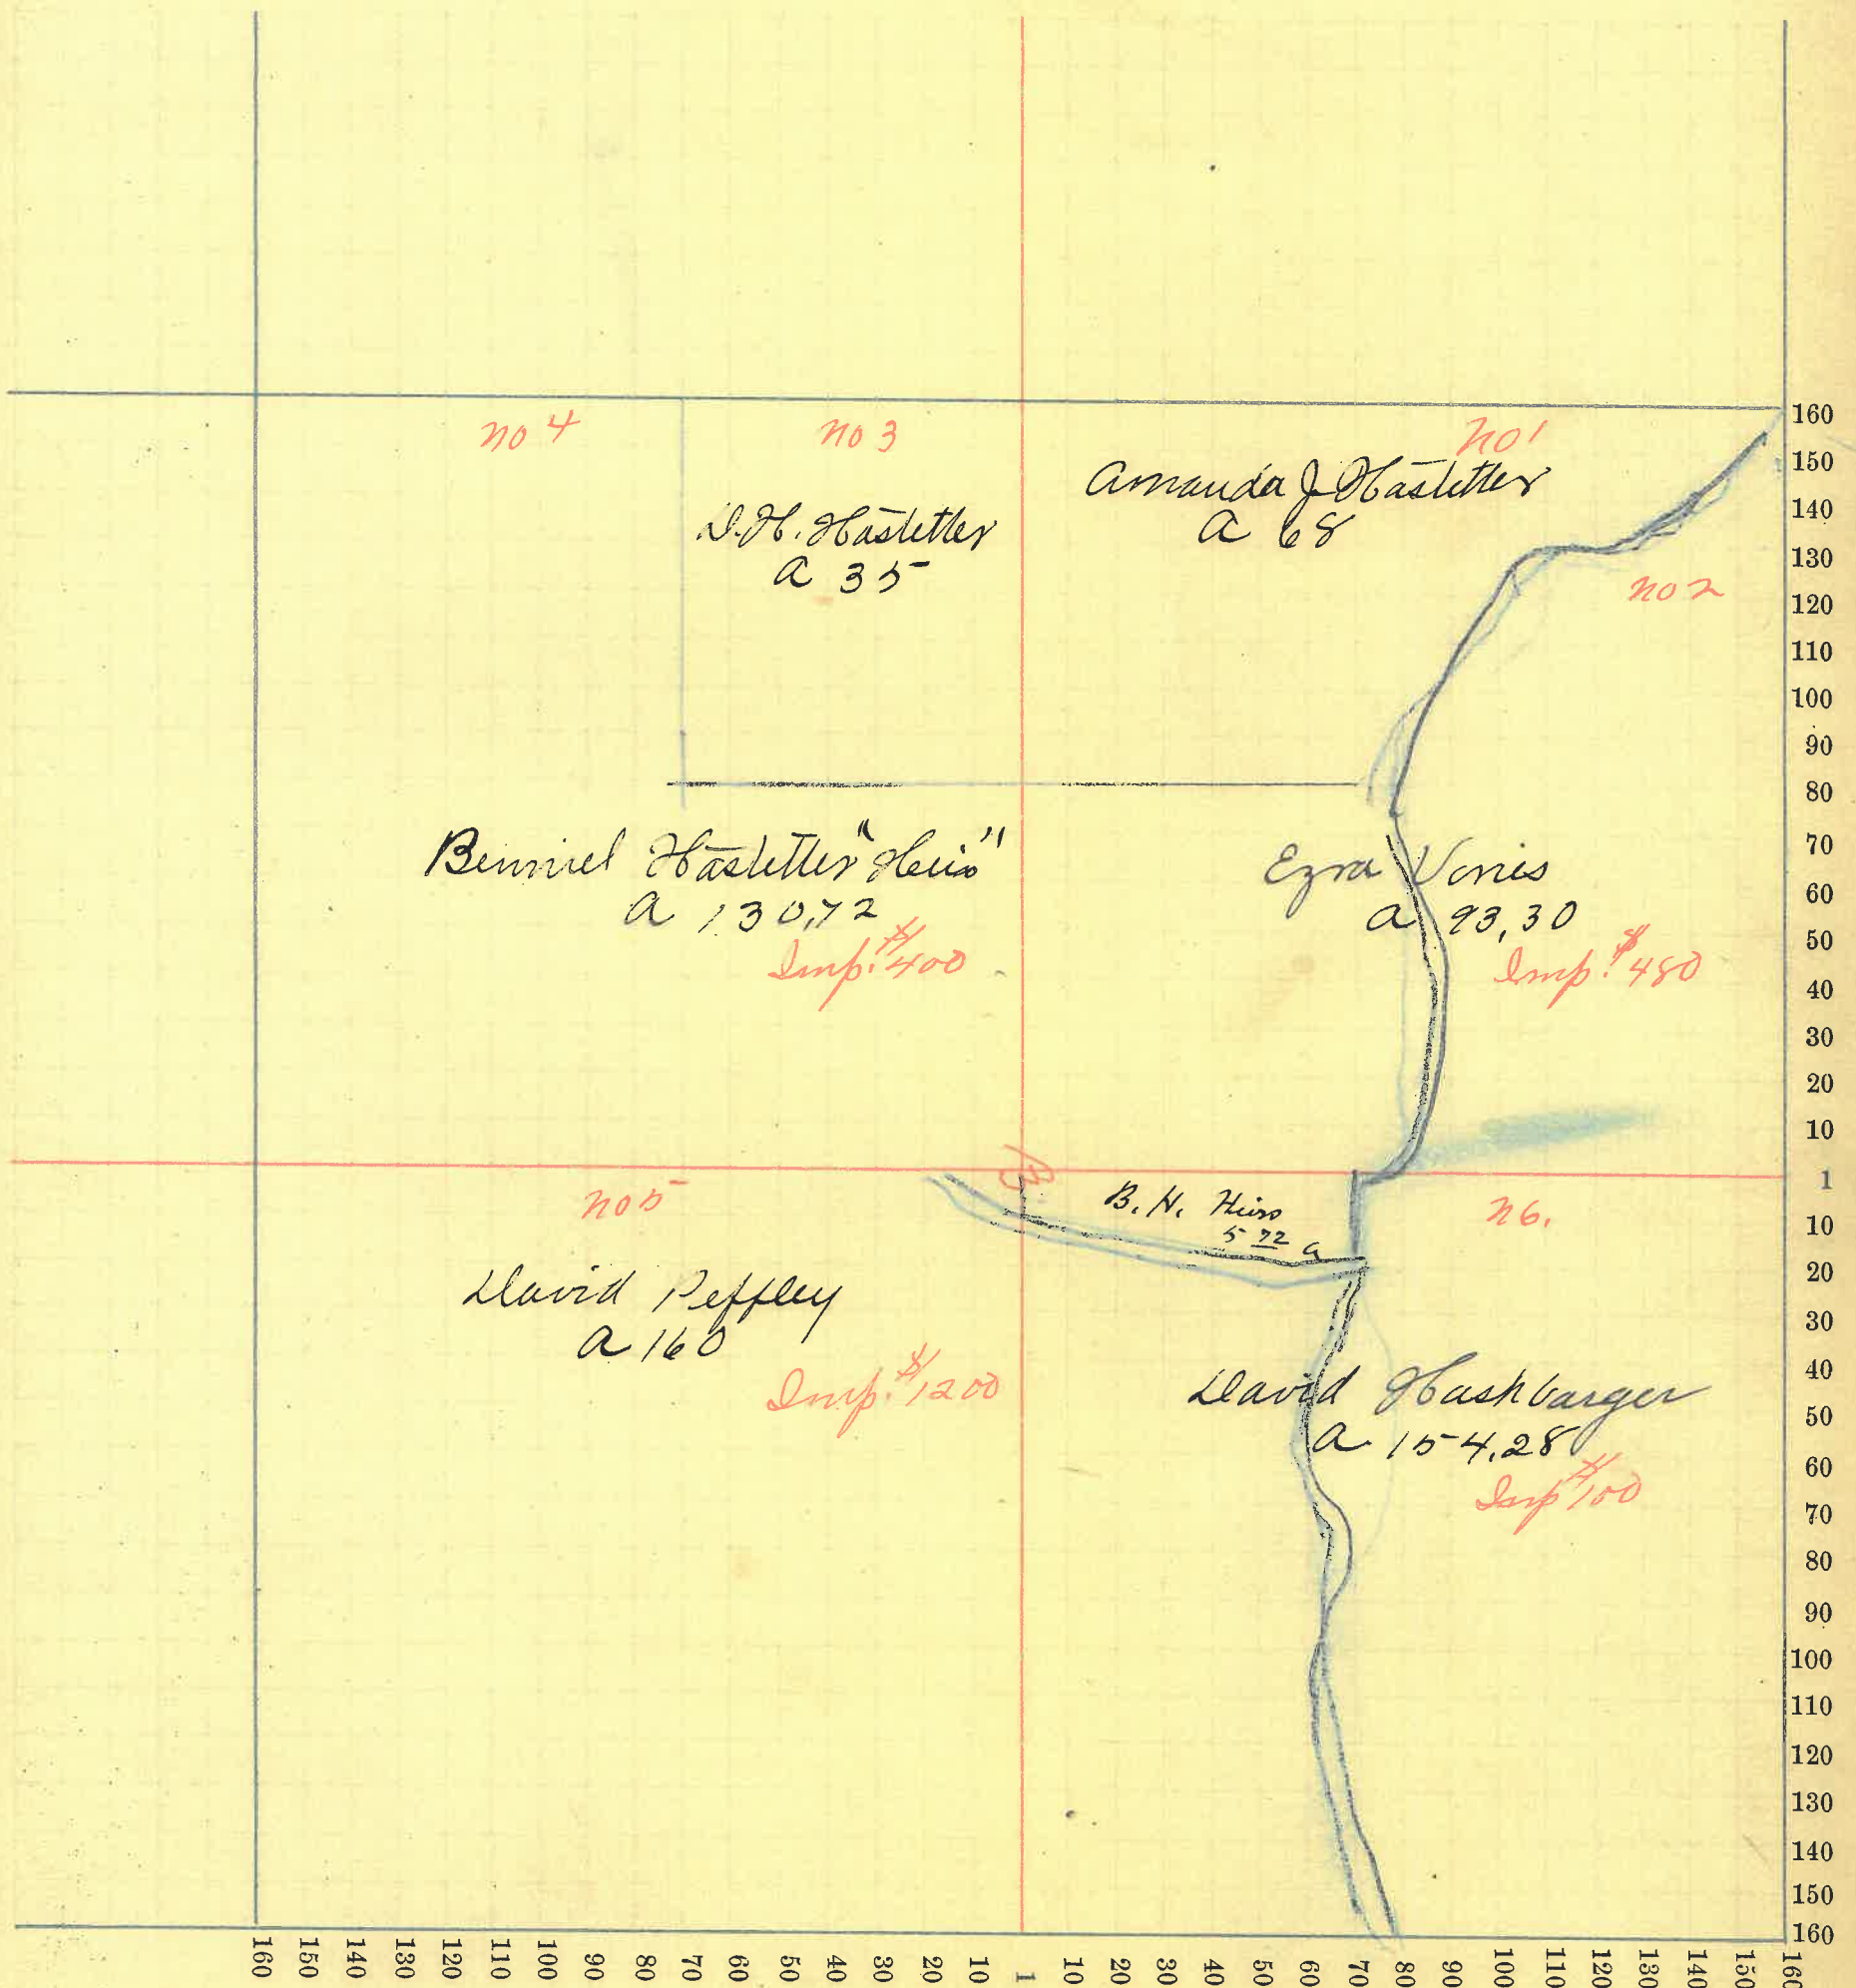 no 4
no 3
no 1
D. H. Hastetter
A 35
Amanda J Hastetter
A 68
no 2
Benniel Hastetter "Heirs"
A 130,72
Imp. $400
Ezra Voris
A 93,30
Imp. $480
no 5
B. H. Heirs
5 72 a
n 6.
David Peffley
A 160
Imp. $1200
David Hashbarger
A 154,28
Imp $100
160
150
140
130
120
110
100
90
80
70
60
50
40
30
20
10
1
10
20
30
40
50
60
70
80
90
100
110
120
130
140
150
160
160 150 140 130 120 110 100 90 80 70 60 50 40 30 20 10 1 10 20 30 40 50 60 70 80 90 100 110 120 130 140 150 160